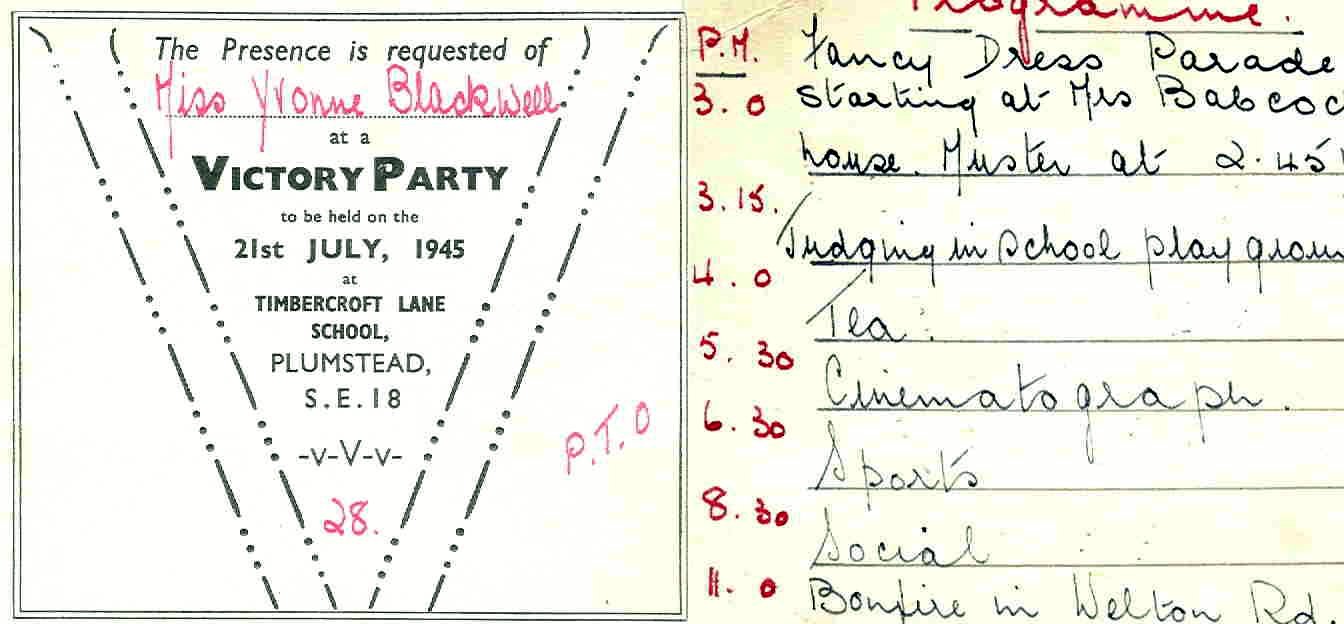 The Presence is requested of
Miss Yvonne Blackwell
at a
VICTORY PARTY
to be held on the
21st JULY, 1945
at
TIMBERCROFT LANE
SCHOOL,
PLUMSTEAD,
S.E.18
-v-V-v-
28.
P.T.O
Programme.
P.M. Fancy Dress Parade
3.0 starting at Mrs Babcoc
house. Muster at 2.45
3.15. Judging in School playgroun
4.0 Tea.
5.30 Cinematograph.
6.30 Sports
8.30 Social
11.0 Bonfire in Welton Rd.